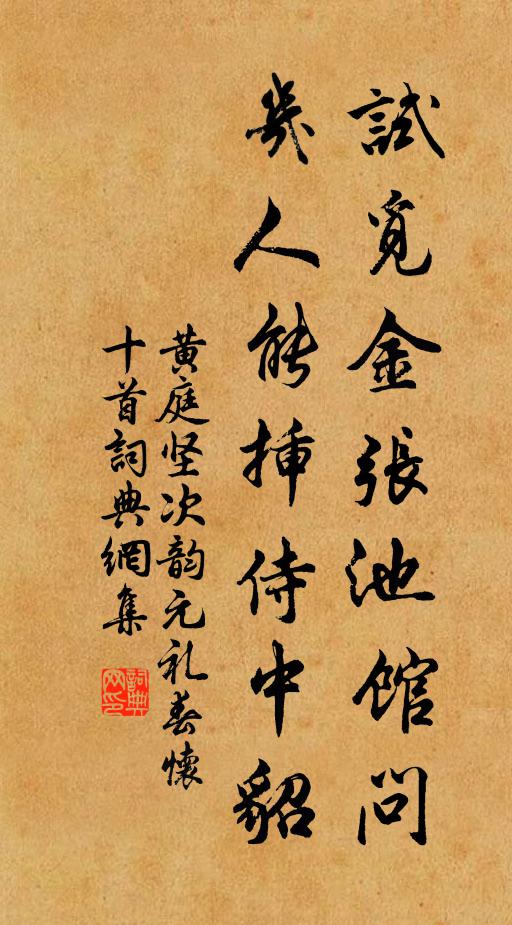 試覓金張池館問
幾人能揷侍中貂
黄庭坚次韵元礼春懷
十首詞典網集
詞典网印